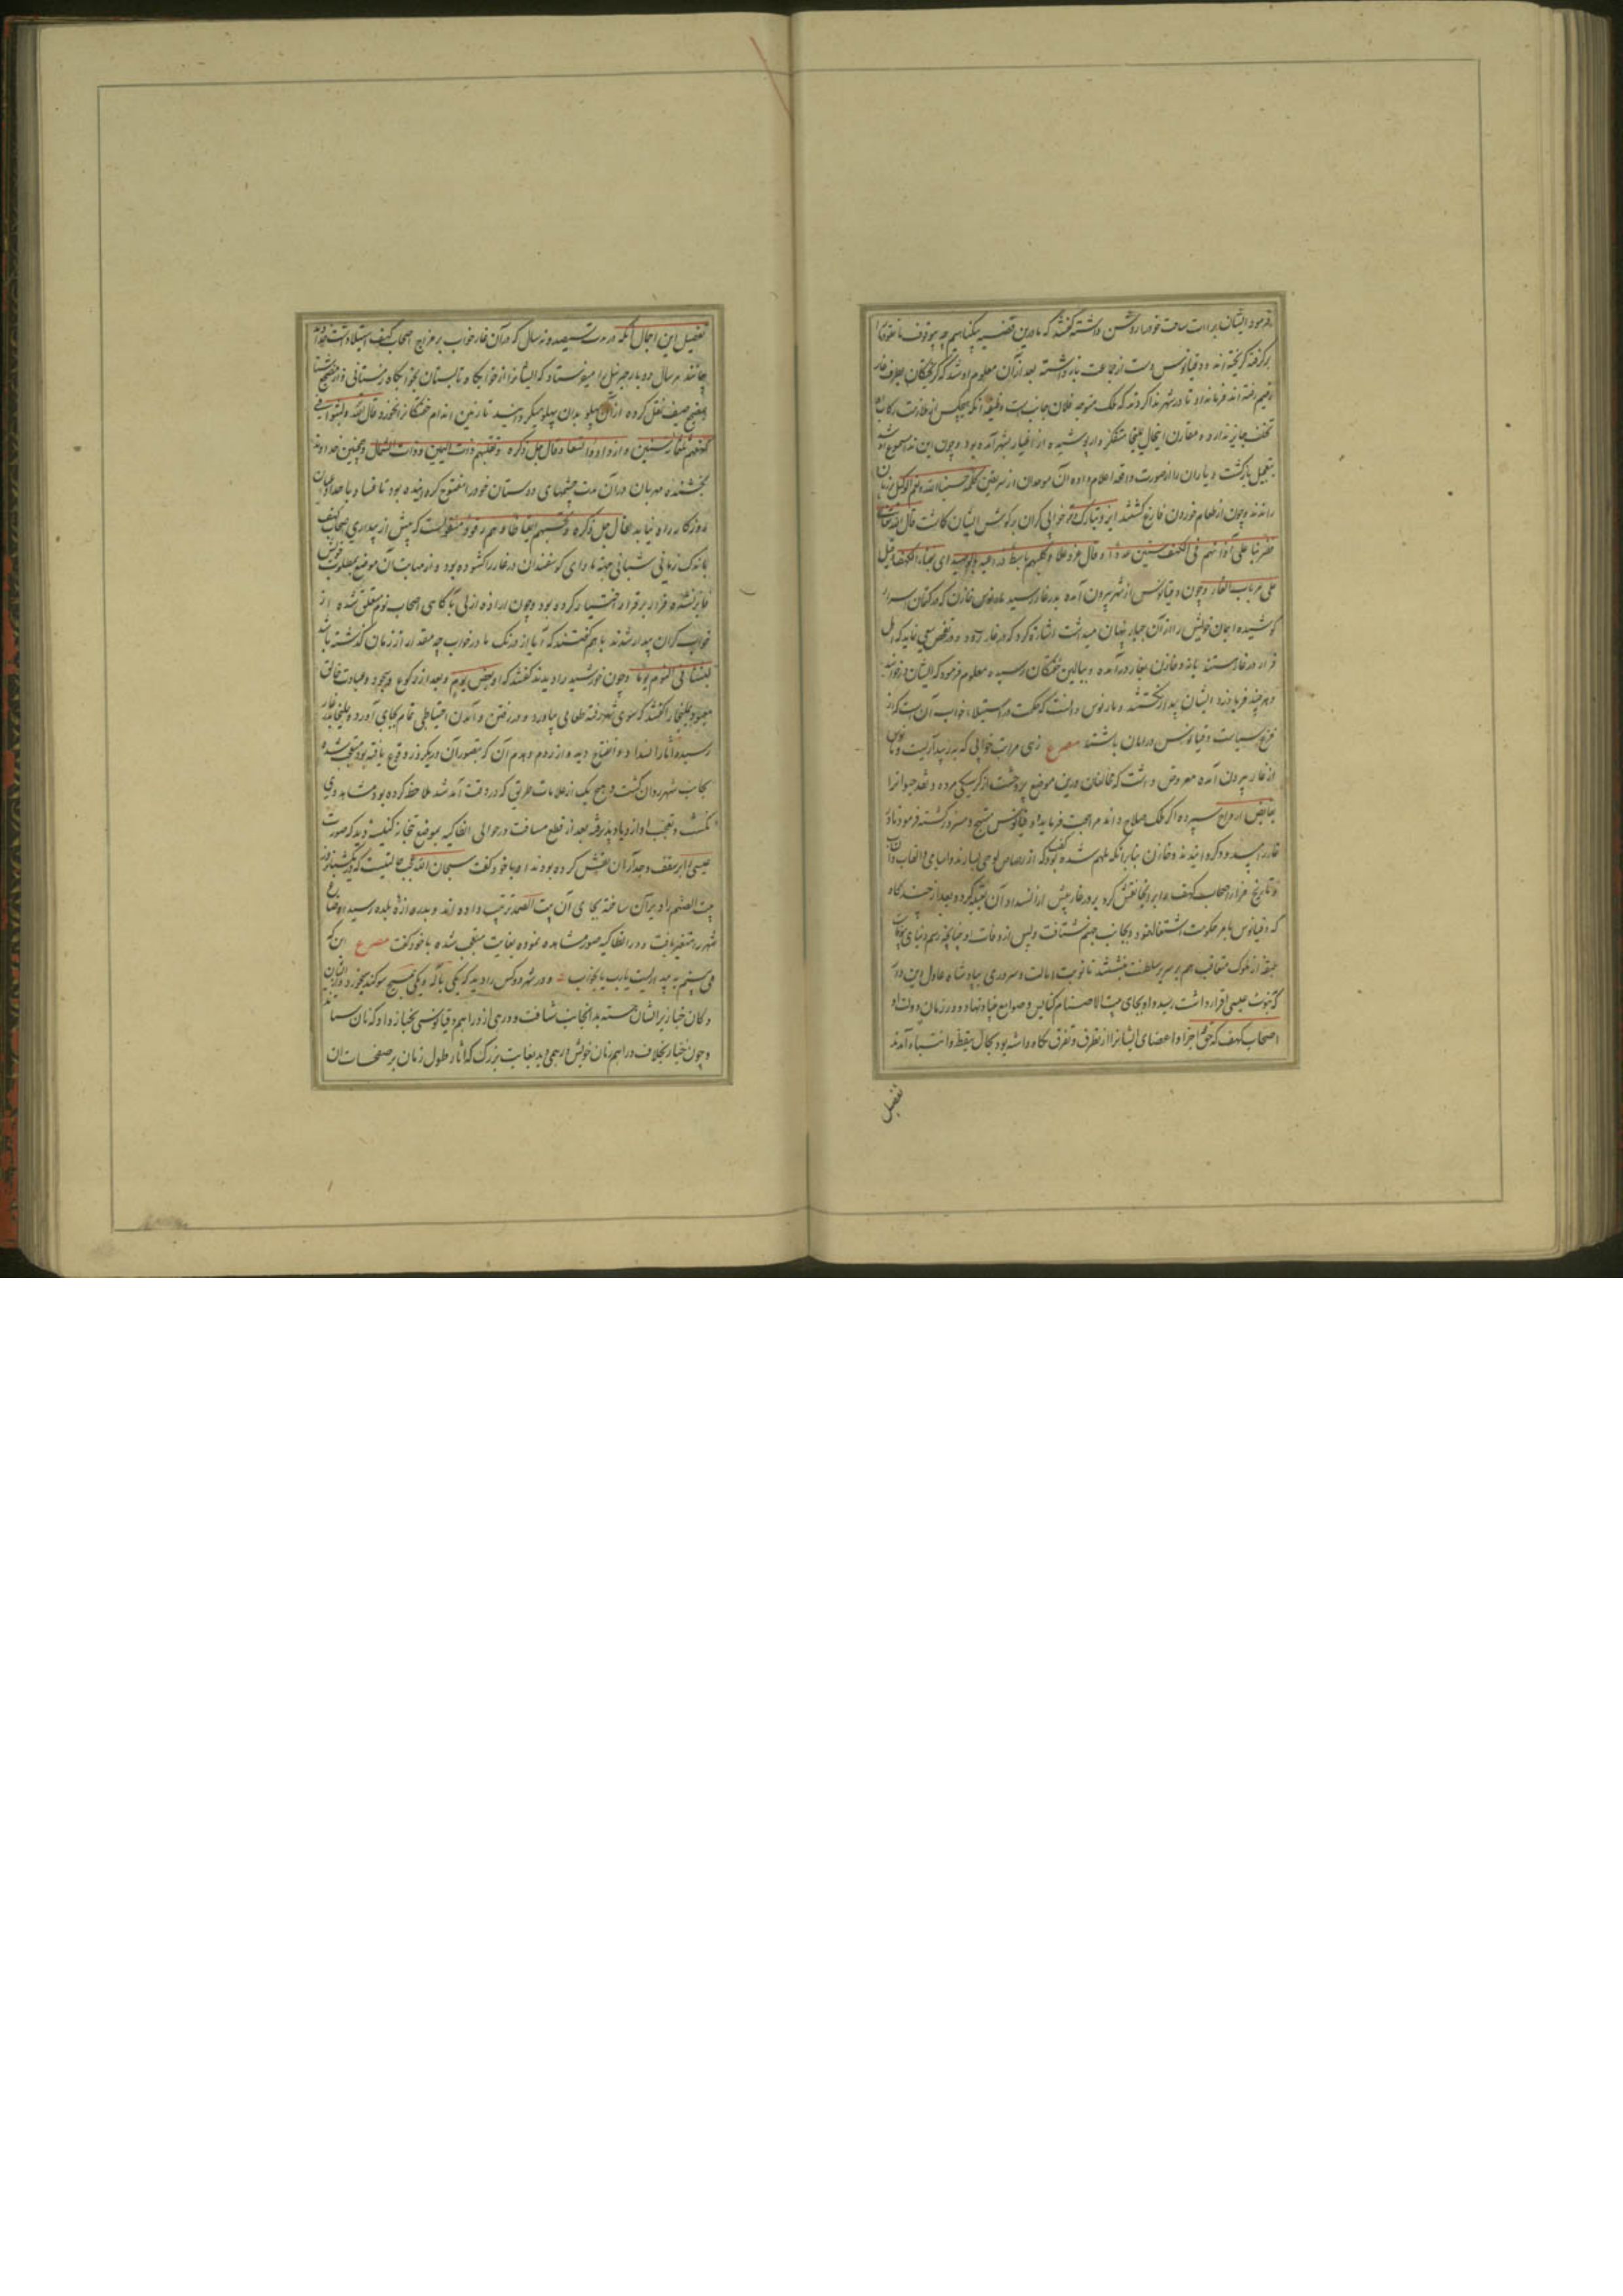 فرمود ایشان برائت ساحت خود را روشن داشته گفتند که ما درین قضیه بیگناهیم چه بیوقوف ما نقود ما را
برگرفته گریخته اند و دقیانوس دست از جماعت باز داشته بعد از آن معلوم او شد که گریختگان بطرف غار
رقیم رفته اند فرمانداد تا در شهر ندا کردند که ملک متوجه فلان جانب است وظیفه آنکه هیچکس از ملازمت رکاب
تخلف جایز ندارد و مقارن اینحال یملیخا متنکر وار پوشیده از اغیار بشهر آمده بود و چون این ندا مسموع او شد
بتعجیل بازگشت و یاران را از صورت واقعه اعلام داده آن موحدان از سر یقین کلمه حسبنا الله ونعم الوکیل بر زبان
راندند و چون از طعام خوردن فارغ گشتند ایزد تبارک و تعالی خوابی گران بر گوش ایشان گماشت قال الله تعالی
فضربنا علی آذانهم فی الکهف سنین عددا و قال عز و علا وکلبهم باسط ذراعیه بالوصید ای بفناء الکهف و قیل
علی باب الغار و چون دقیانوس از شهر بیرون آمده بدر غار رسید ماریوس خازن که در کتمان اسرار
کوشیده ایمان خویش را از آن جبار پنهان میداشت اشارة کرد که در غار رود و در تفحص سعی نماید که اهل
فرار در غار هستند یا نه و خازن بغار درآمده و ببالین خفتگان رسیده معلوم فرمود که ایشان در خوابند
و هر چند فریاد زد ایشان بیدار نگشتند و ماریوس دانست که حکمت در استیلاء خواب آن است که از
فزع سیاست دقیانوس در امان باشند مصرع زهی مراتب خوابی که به ز بیداریست
از غار بیرون آمده معروض داشت که مخالفان درین موضع پروحشت از گرسنگی مرده و نقد حیوة را
بقابض ارواح سپرده اگر ملک صلاح داند مراجعت فرماید و دقیانوس مبتهج و مسرور گشته فرمود تا در
غار را مسدود گردانیدند و خازن بنابر آنکه ملهم شده بود که از رصاص لوحی بسازند و اسامی و القاب و انساب
و تاریخ فرار اصحاب کهف را بر آنجا نقش کرد بر در غار پیش از انسداد آن تعبیه کرد و بعد از چند گاه
که دقیانوس بامر حکومت اشتغال نمود و بجانب جهنم شتافت و پس از وفات او چنانچه رسم دنیای بیوفاست
طبقه از ملوک متعاقب هم بر سریر سلطنت نشستند تا نوبت ایالت و سروری بپادشاه عادل دین دار
که بنبوت عیسی اقرار داشت رسید و او بجای بیت الاصنام کنایس و صوامع بنیاد نهاد و در زمان دولت او
اصحاب کهف که حق اجزا و اعضای ایشانرا از تطرق و تفرق نگاه داشته بود بحال تیقظ و انتباه آمدند
تفصیل
تفصیل این اجمال آنکه در مدت سیصد و نه سال که در آن غار خواب بر مزاج اصحاب کهف استیلا داشت خداوند
بیمانند هر سال دو بار جبرئیل را میفرستاد که ایشانرا از خوابگاه تابستان بخوابگاه زمستانی و از مضجع شتا
بمضجع صیف نقل کرده از آن پهلو بدان پهلو میگردانید تا زمین اندام خفتگان را نخورد قال الله ولبثوا فی
کهفهم ثلثمائة سنین وازدادوا تسعا و قال جل ذکره ونقلبهم ذات الیمین وذات الشمال و همچنین خداوند
بخشنده مهربان در آن مدت چشمهای دوستان خود را مفتوح گردانیده بود تا فساد باحداق ایشان
در روزگار راه نیابد قال جل ذکره وتحسبهم ایقاظا وهم رقود منقولست که پیش از بیداری اصحاب کهف
باندک زمانی شبانی جهة ماوای گوسفندان در غار را گشوده بود و از مهابت آن موضع بمطلوب خویش
فایز نشده فرار بر قرار اختیار کرده بود و چون ارادة ازلی بآگاهی اصحاب نوم متعلق شده از
خواب گران بیدار شدند با هم گفتند که آیا از درنگ ما در خواب چه مقدار از زمان گذشته باشد
لبثنا فی النوم یوما و چون خورشید را دیدند گفتند که او بعض یوم و بعد از رکوع و سجود و عبادت خالق
معبود یملیخا را گفتند که سوی شهر رفته طعامی بیاورد و در رفتن و آمدن احتیاطی تمام بجای آورد و یملیخا بدر غار
رسیده آثار انسداد و انفتاح دید و از ردم و هدم آن که بتصور آن در یکروز وقوع یافته بود متعجب شده
بجانب شهر روان گشت و هیچ یک از علامات طریق که در وقت آمد شد ملاحظه کرده بود مشاهده وی
نگشت و تعجب او ازدیاد پذیرفته بعد از قطع مسافت در حوالی انطاکیه بموضع بتخانه کنیسه دید که صورت
عیسی را بر سقف و جدران آن نقش کرده بودند او با خود گفت سبحان الله عجب حالتیست که در یکشبانروز
بیت الصنم را ویران ساخته بجای آن بیت الصمد ترتیب داده اند و بدروازه بلده رسید اوضاع
شهر را متغیر یافت و در انطاکیه صور مشاهده نموده بغایت متعجب شده با خود گفت مصرع این که
می بینم به بیداریست یا رب یا بخواب و در شهر دو کس را دید که یکی بالله و یکی بمسیح سوگند میخورد
دکان خباز پرسان جسته بدانجانب شتافت و درمی از دراهم دقیانوسی بخباز داد که نان ستاند
و چون خباز بخلاف دراهم زمان خویش درهمی دید بغایت بزرگ که آثار طول زمان بر صفحات آن